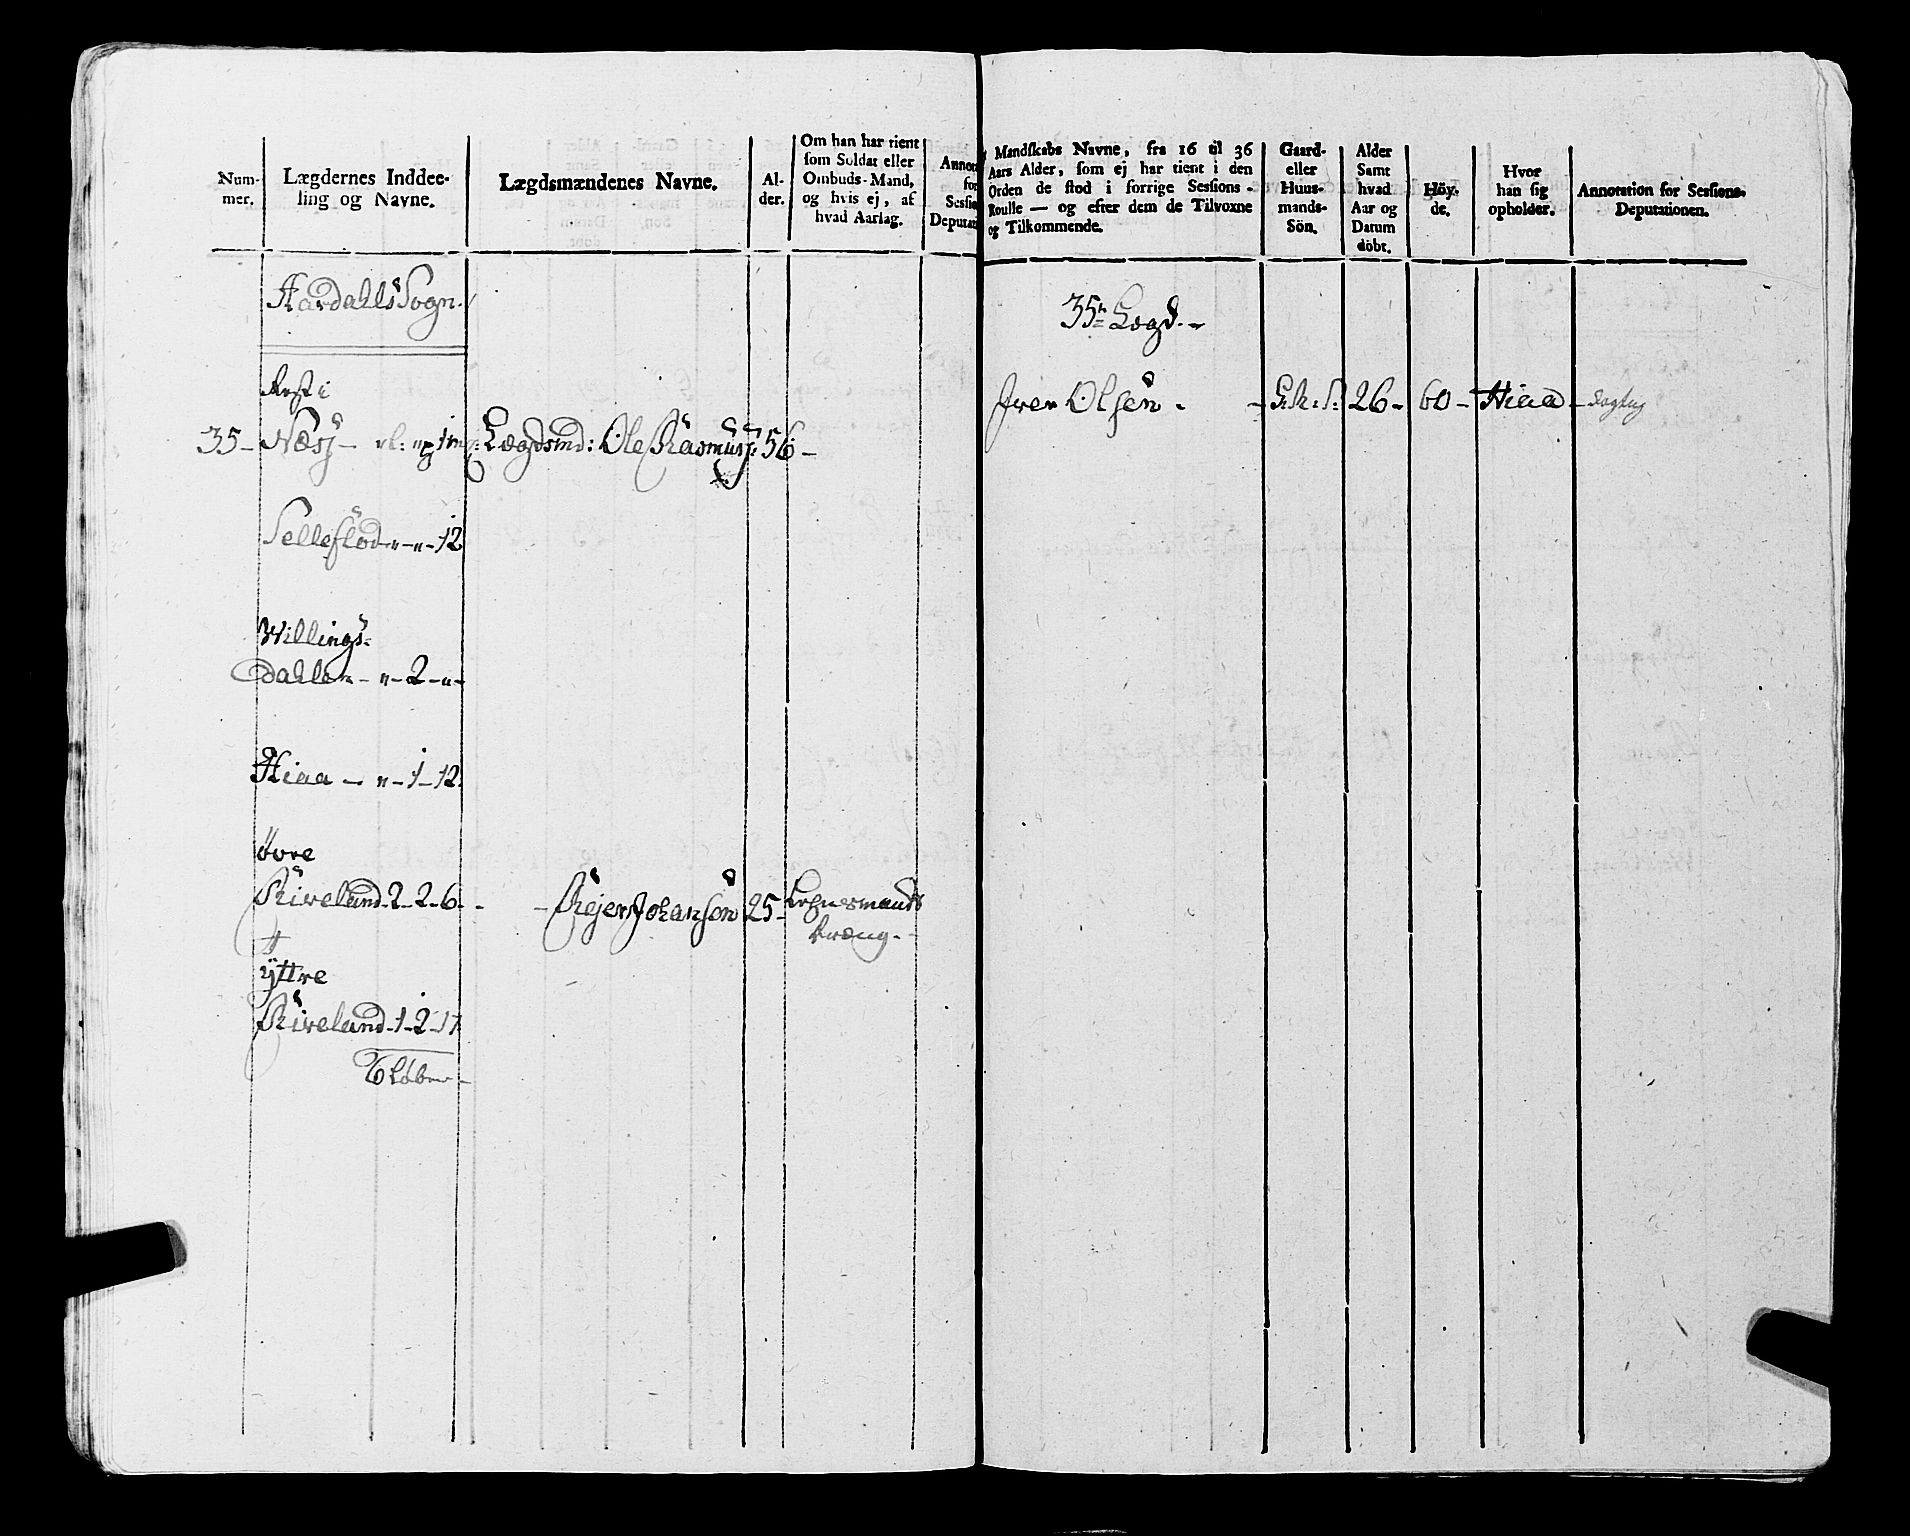 Num-
mer.
Lægdernes Inddee-
ling og Navne.
Lægdsmændenes Navne.
Al-
der.
Om han har tient
som Soldat eller
Ombuds-Mand,
og hvis ej, af
hvad Aarsag.
Annot
for
Sessio
Deputat
Aardahls Sogn.
Rest i
35 - Næsj - 1 Lægdsmd: Ole Rasmusj: 56 -
Selleflod - " - " - 12
Willings-
Dahlen - " - 2 - " -
Hiaa - " - 1 - 12
Øvre
Riveland - 2 - 2 - 6 - - Rejer Johanson 25 - Lehnsmands
Dræng -
ÿttre
Riveland - 1 - 2 - 17
6 Løber -
Mandskabs Navne, fra 16 til 36
Aars Alder, som ej har tient i den
Orden de stod i forrige Sessions-
Roulle — og efter dem de Tilvoxne
og Tilkommende.
Gaard-
eller
Huus-
mands-
Sön.
Alder
Samt
hvad
Aar og
Datum
döbt.
Höy-
de.
Hvor
han sig
opholder.
Annotation for Sessions-
Deputationen.
35te Lægd -
Iver Olsen - 26 - 60 - Hiaa - dygtig